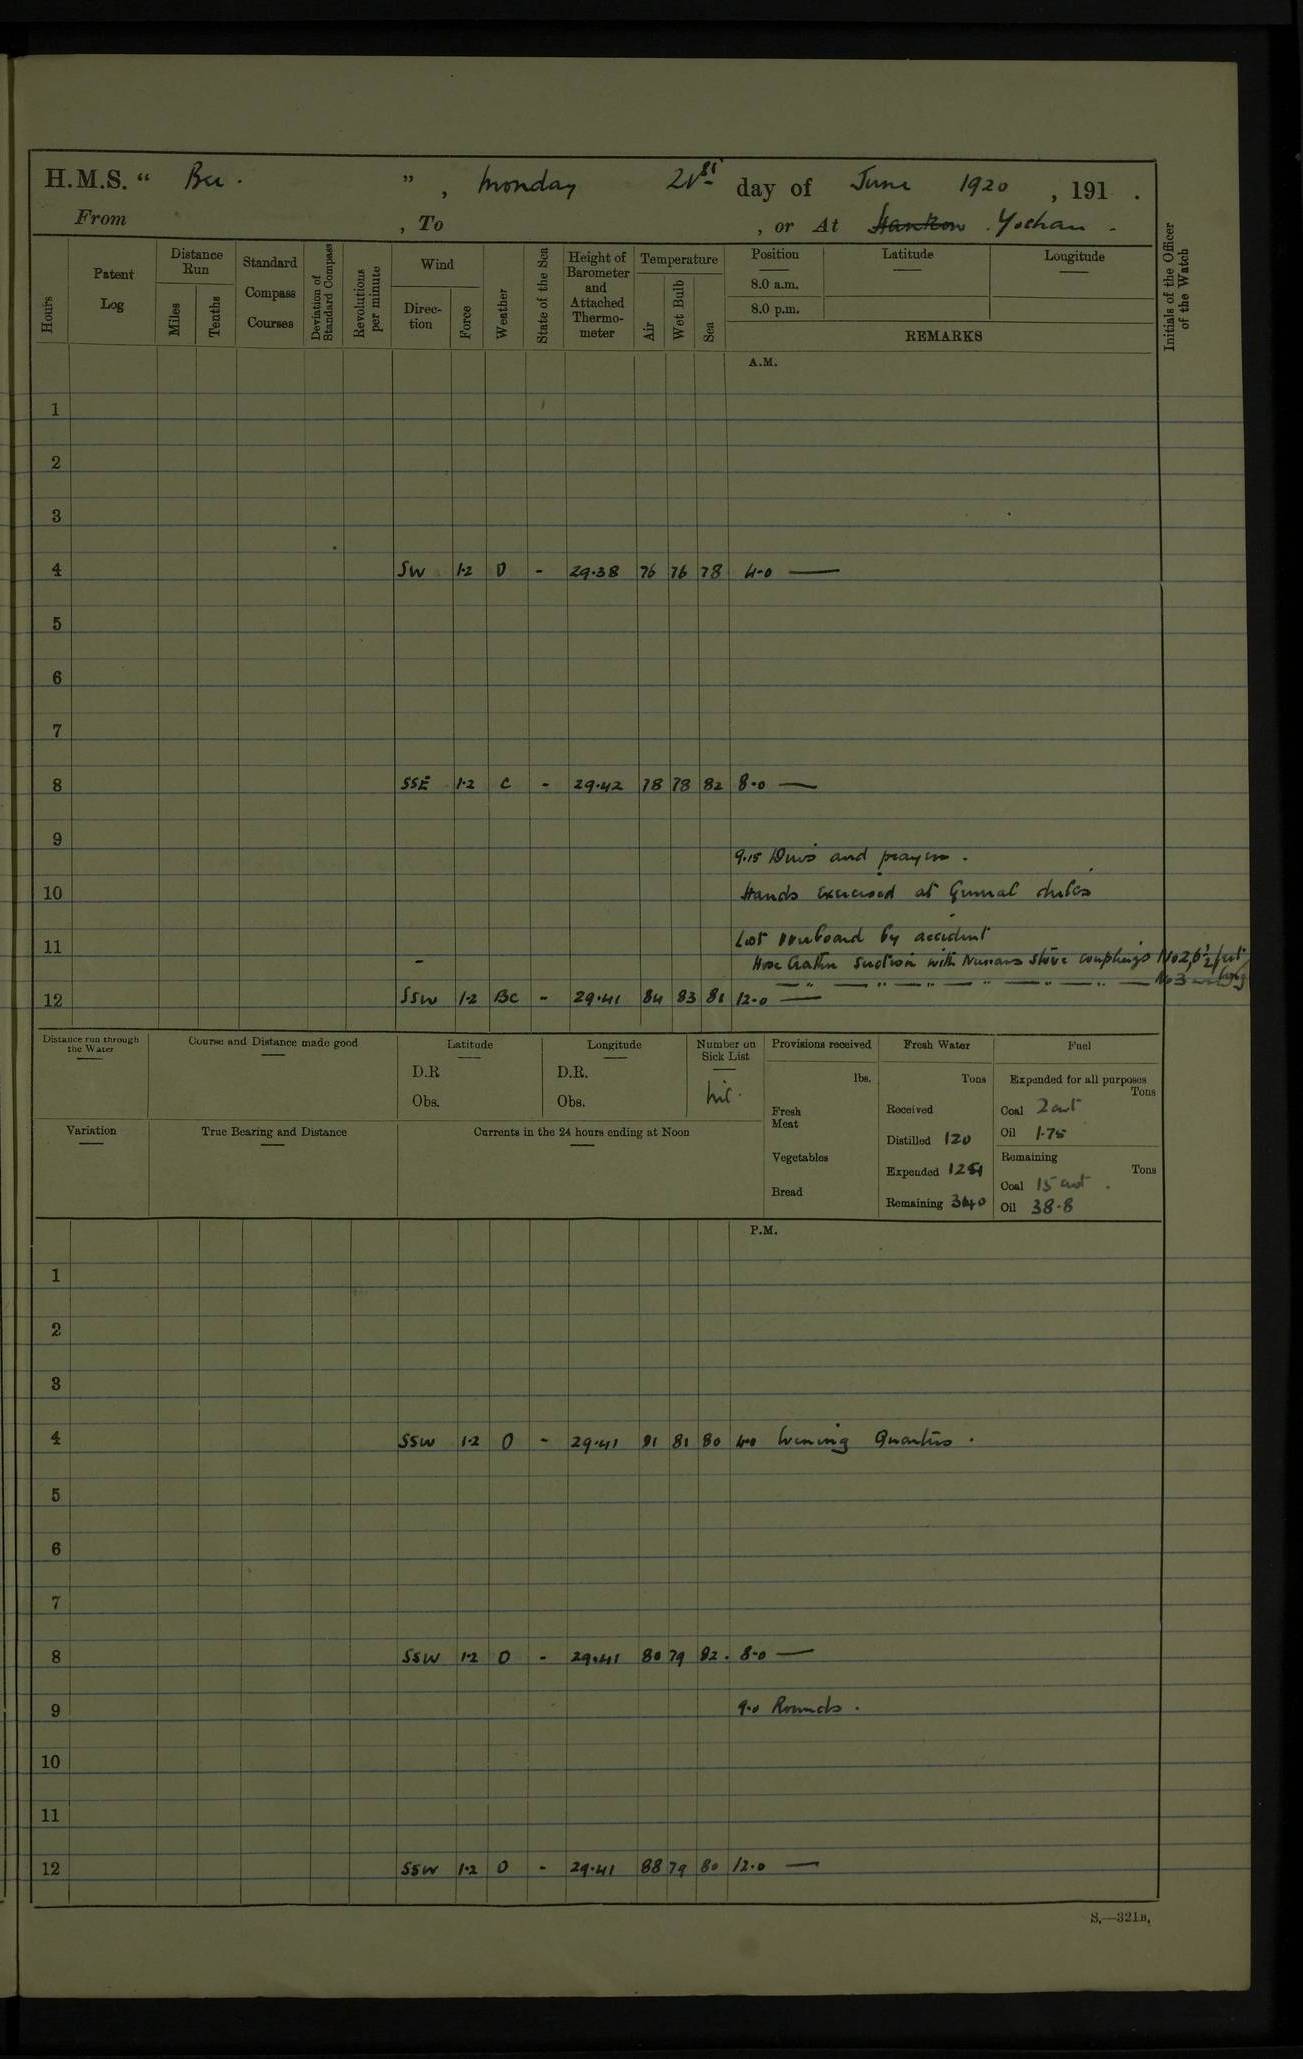 H.M.S. “ Bee. ” , Monday 21st day of June 1920 , 191 .
From , To , or At Hankow . Yochau .
Hours
Patent Log
Distance Run
Miles
Tenths
Standard Compass Courses
Deviation of Standard Compass
Revolutions per minute
Wind
Direction
Force
Weather
State of the Sea
Height of Barometer and Attached Thermometer
Temperature
Air
Wet Bulb
Sea
Position
8.0 a.m.
8.0 p.m.
Latitude
Longitude
REMARKS
Initials of the Officer of the Watch
A.M.
1
2
3
4 SW 1·2 O - 29·38 76 76 78 4·0 —
5
6
7
8 SSE 1·2 C - 29·42 78 78 82 8·0 —
9
9.15 Divs and prayers .
10 Hands exercised at General duties
Lost overboard by accident
11
Hose suction with couplings No 2, 6½ feet
" " " " " " No 3
12 SSW 1·2 BC - 29·41 84 83 81 12·0 —
Distance run through the Water
Course and Distance made good
Latitude
D.R
Obs.
Longitude
D.R.
Obs.
Number on Sick List
nil.
Provisions received
lbs.
Fresh Meat
Vegetables
Bread
Fresh Water
Tons
Received
Distilled 120
Expended
Remaining 340
Fuel
Expended for all purposes
Tons
Coal 2 cwt
Oil 1·75
Remaining
Tons
Coal 15 cwt .
Oil 38·8
Variation
True Bearing and Distance
Currents in the 24 hours ending at Noon
P.M.
1
2
3
4 SSW 1·2 O - 29·41 81 81 80 4·0 Evening Quarters .
5
6
7
8 SSW 1·2 O - 29·41 80 79 82 . 8·0 —
9 9·0 Rounds .
10
11
12 SSW 1·2 O - 29·41 88 79 80 12·0 —
S.—321B.